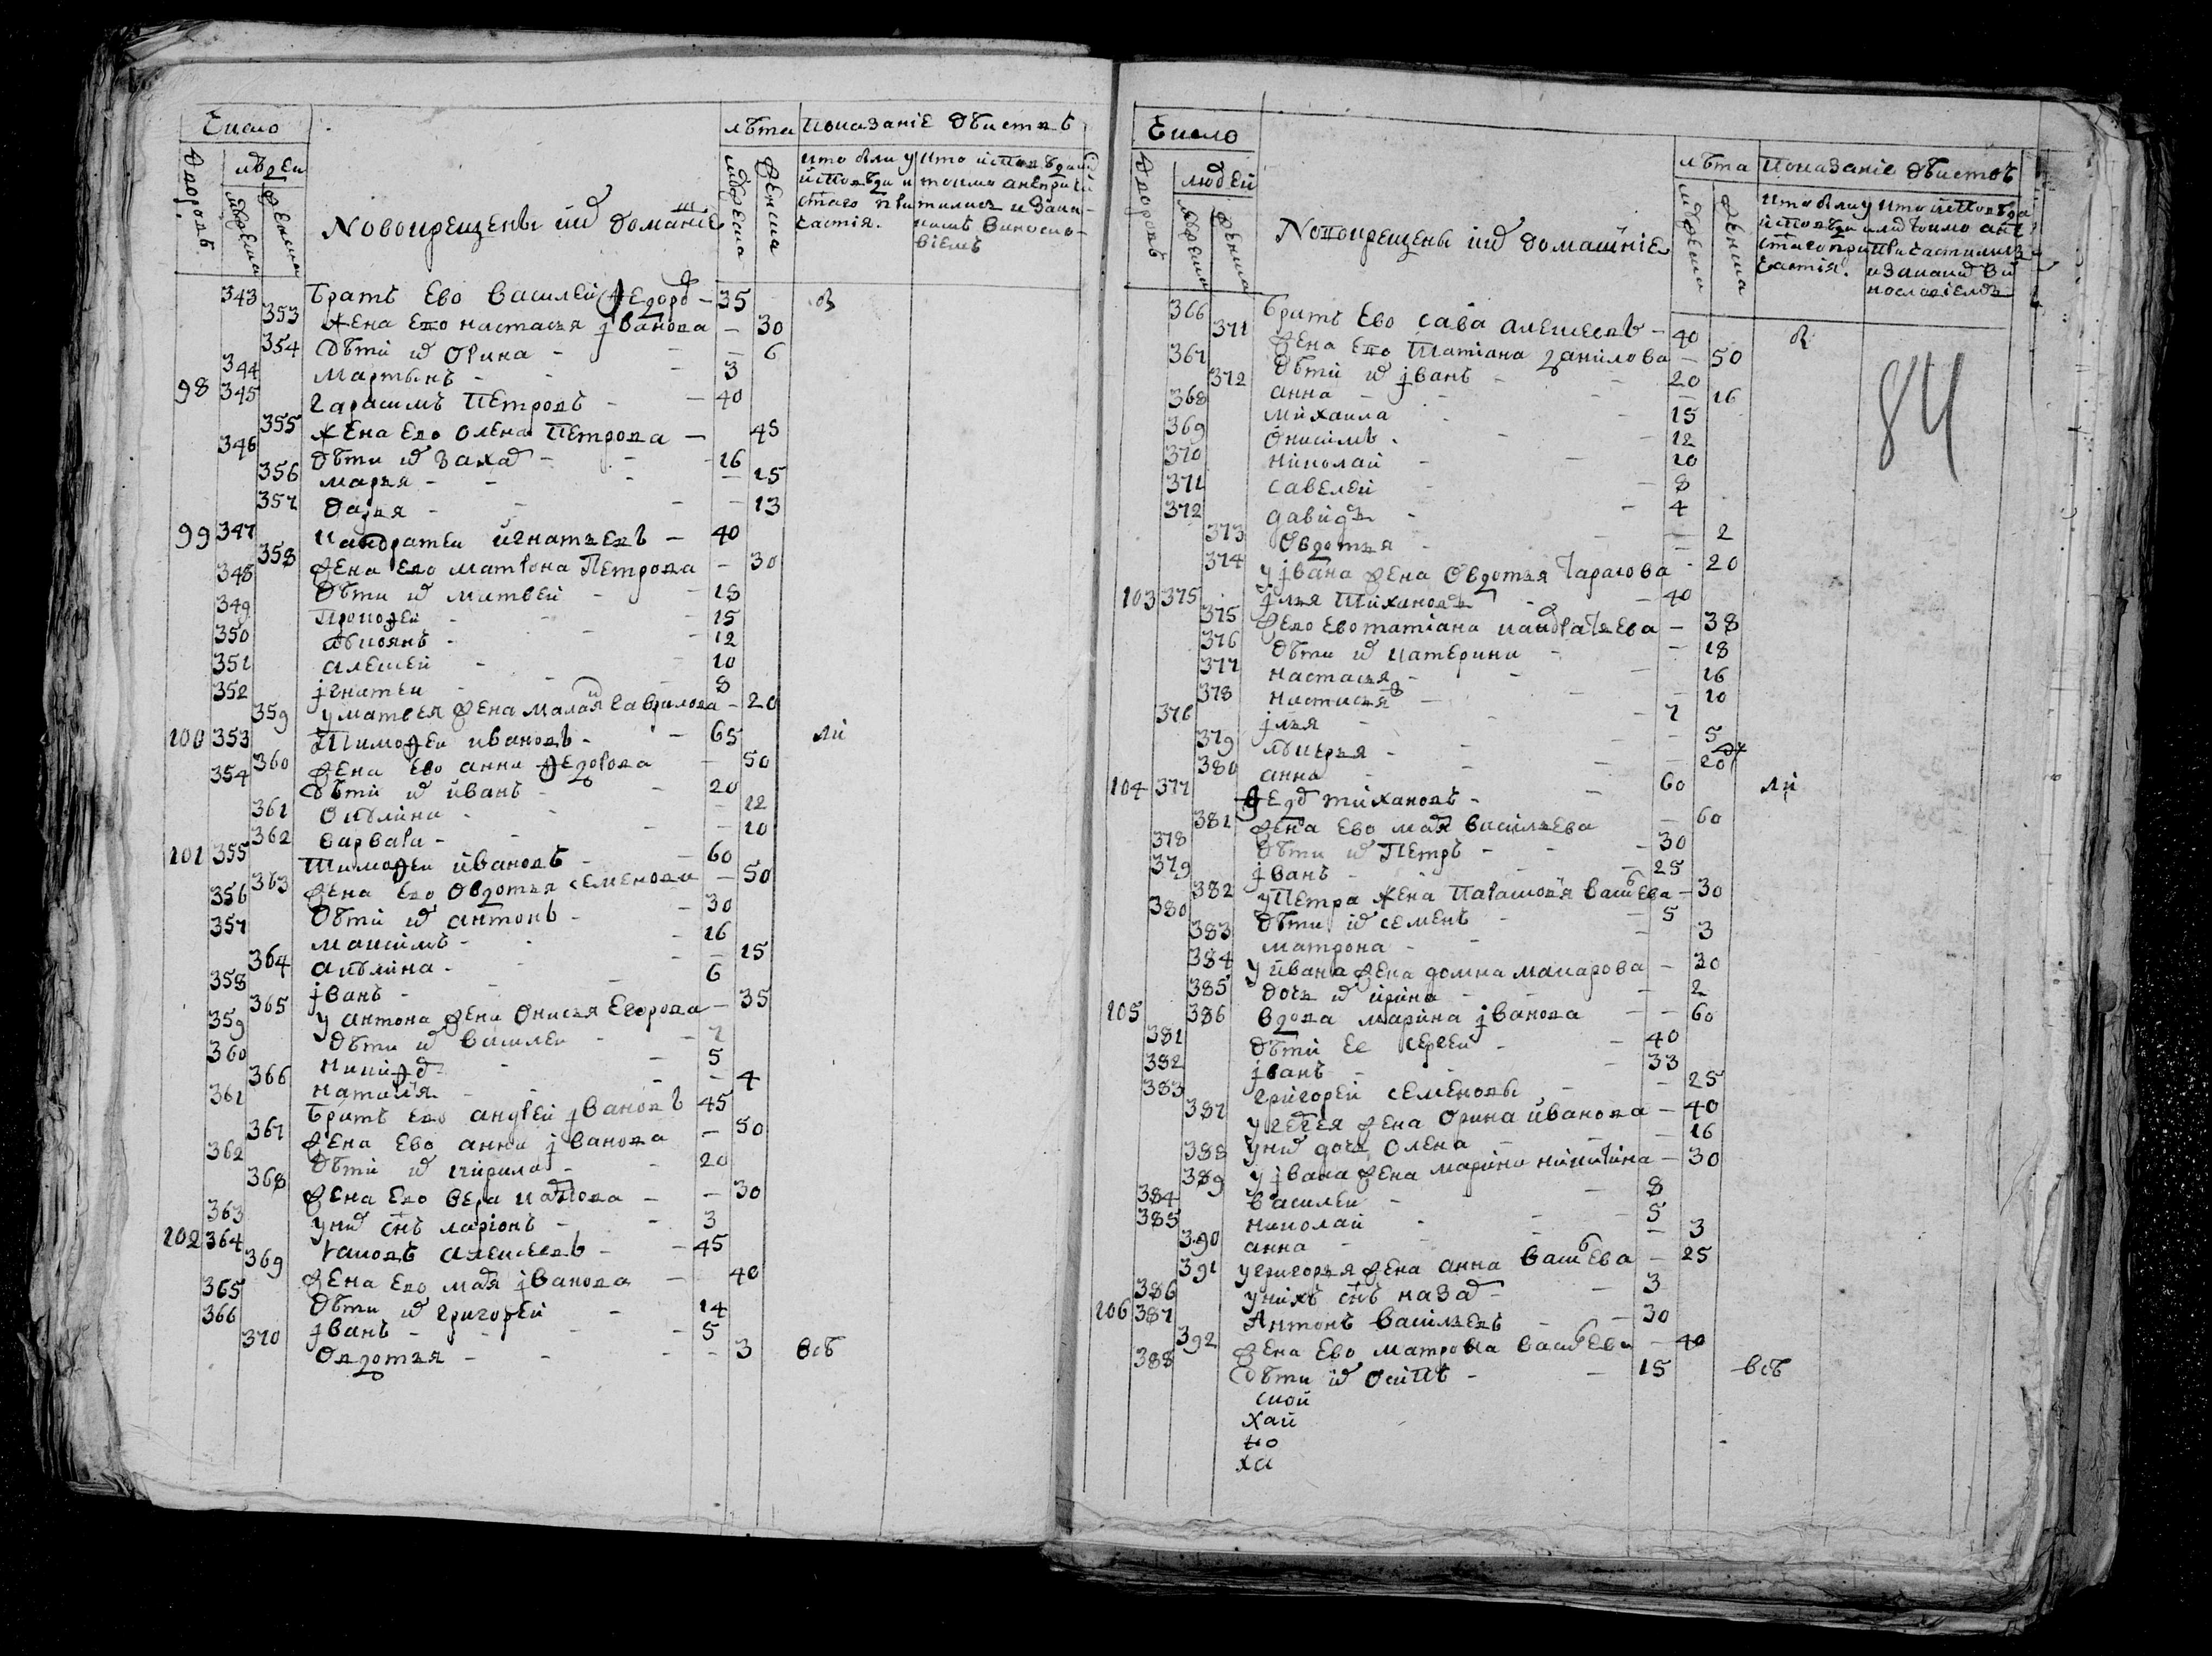 Число
лѣта Показаніе дѣиствъ
дворовъ
людеи
мужеска
женска
Новокрещены и их домашніе
мужеска
женска
кто были у исповѣди и стаго причастія.
кто исповѣдались токмо а не причастились и за каким винословіемъ
343 Братъ Ево Василей Федоров - 35 в
353 жена Ево настасья iванова - 30
354 дѣти их Орина - 6
344 мартынъ - 3
98 345 гарасимъ Петровъ - 40
355 жена Ево Олена Петрова - 45
346 дѣти их Захар - 16
356 марья - 15
357 дарья - 13
99 347 кандратеи игнатьевъ - 40
358 жена Ево матрона Петрова - 30
348 дѣти их матвей - 18
349 Прокофей - 15
350 - 12
351 алексей - 10
352 iгнатеи - 8
359 у матвея жена малания гаврилова - 20
100 353 Тимофеи ивановъ - 65 ли
360 жена Ево анна Федорова - 50
354 дѣти их иванъ - 20
361 окулина - 12
362 варвара - 10
101 355 Тимофеи ивановъ - 60
363 жена Ево Овдотья семенова - 50
356 дѣти их антонъ - 30
357 максимъ - 16
364 акулина - 15
358 iванъ - 6
365 у антона жена Онисья Егорова - 35
359 дѣти их василеи - 7
360 никифор - 5
366 наталия - 4
361 братъ Ево андрей iвановъ 45
367 жена Ево анна iванова - 50
362 дѣти их кирила - 20
368 жена Ево вера карпова - 30
363 у них снъ ларiонъ - 3
102 364 iаковъ алексеевъ - 45
369 жена Ево марья iванова - 40
365 дѣти их григорей - 14
366 iванъ - 5
370 Овдотья - 3 всѣ
Число
лѣта Показаніе дѣиствъ
дворовъ
людей
мужеска
женска
Новокрещены и их домашніе
мужеска
женска
кто были у исповѣди и стаго причастія.
84
366 братъ Ево сава алексеевъ - 40 в
371 жена Ево Татiана данилова - 50
367 дѣти их iванъ - 20
372 анна - 16
368 михаила - 15
369 Онисимъ - 12
370 николай - 10
371 савелей - 8
372 давидъ - 4
373 Овдотья - 2
374 у iвана жена Овдотья Тарасова - 20
103 375 iлья Тихановъ - 40
375 жена Ево татiана кандратьева - 38
376 дѣти их катерина - 18
377 настасья - 16
378 настасья - 10
376 iлья - 7
379 лукерья - 5
380 анна - 20
104 377 Федор тихановъ - 60 ли
381 жена Ево марья васильева - 60
378 дѣти их Петръ - 30
379 iванъ - 25
382 у Петра жена Парасковья васильева - 30
380 дѣти их семенъ - 5
383 матрона - 3
384 у ивана жена домна макарова - 30
385 дочь их ирина - 2
105 386 вдова марина iванова - 60
381 дѣти Ее сергей - 40
382 iванъ - 33
383 григорей семеновы - 25
387 у сергея жена Орина иванова - 40
388 у них дочь Олена - 16
389 у iвана жена марина никитина - 30
384 василеи - 8
385 николай - 5
390 анна - 3
391 у григорья жена анна васильева - 25
386 у нихъ снъ назар - 3
106 387 Антонъ васильевъ - 30
392 жена Ево матрона васильева - 40
388 дѣти их Осипъ - 15 всѣ
ской
хай
но
ха